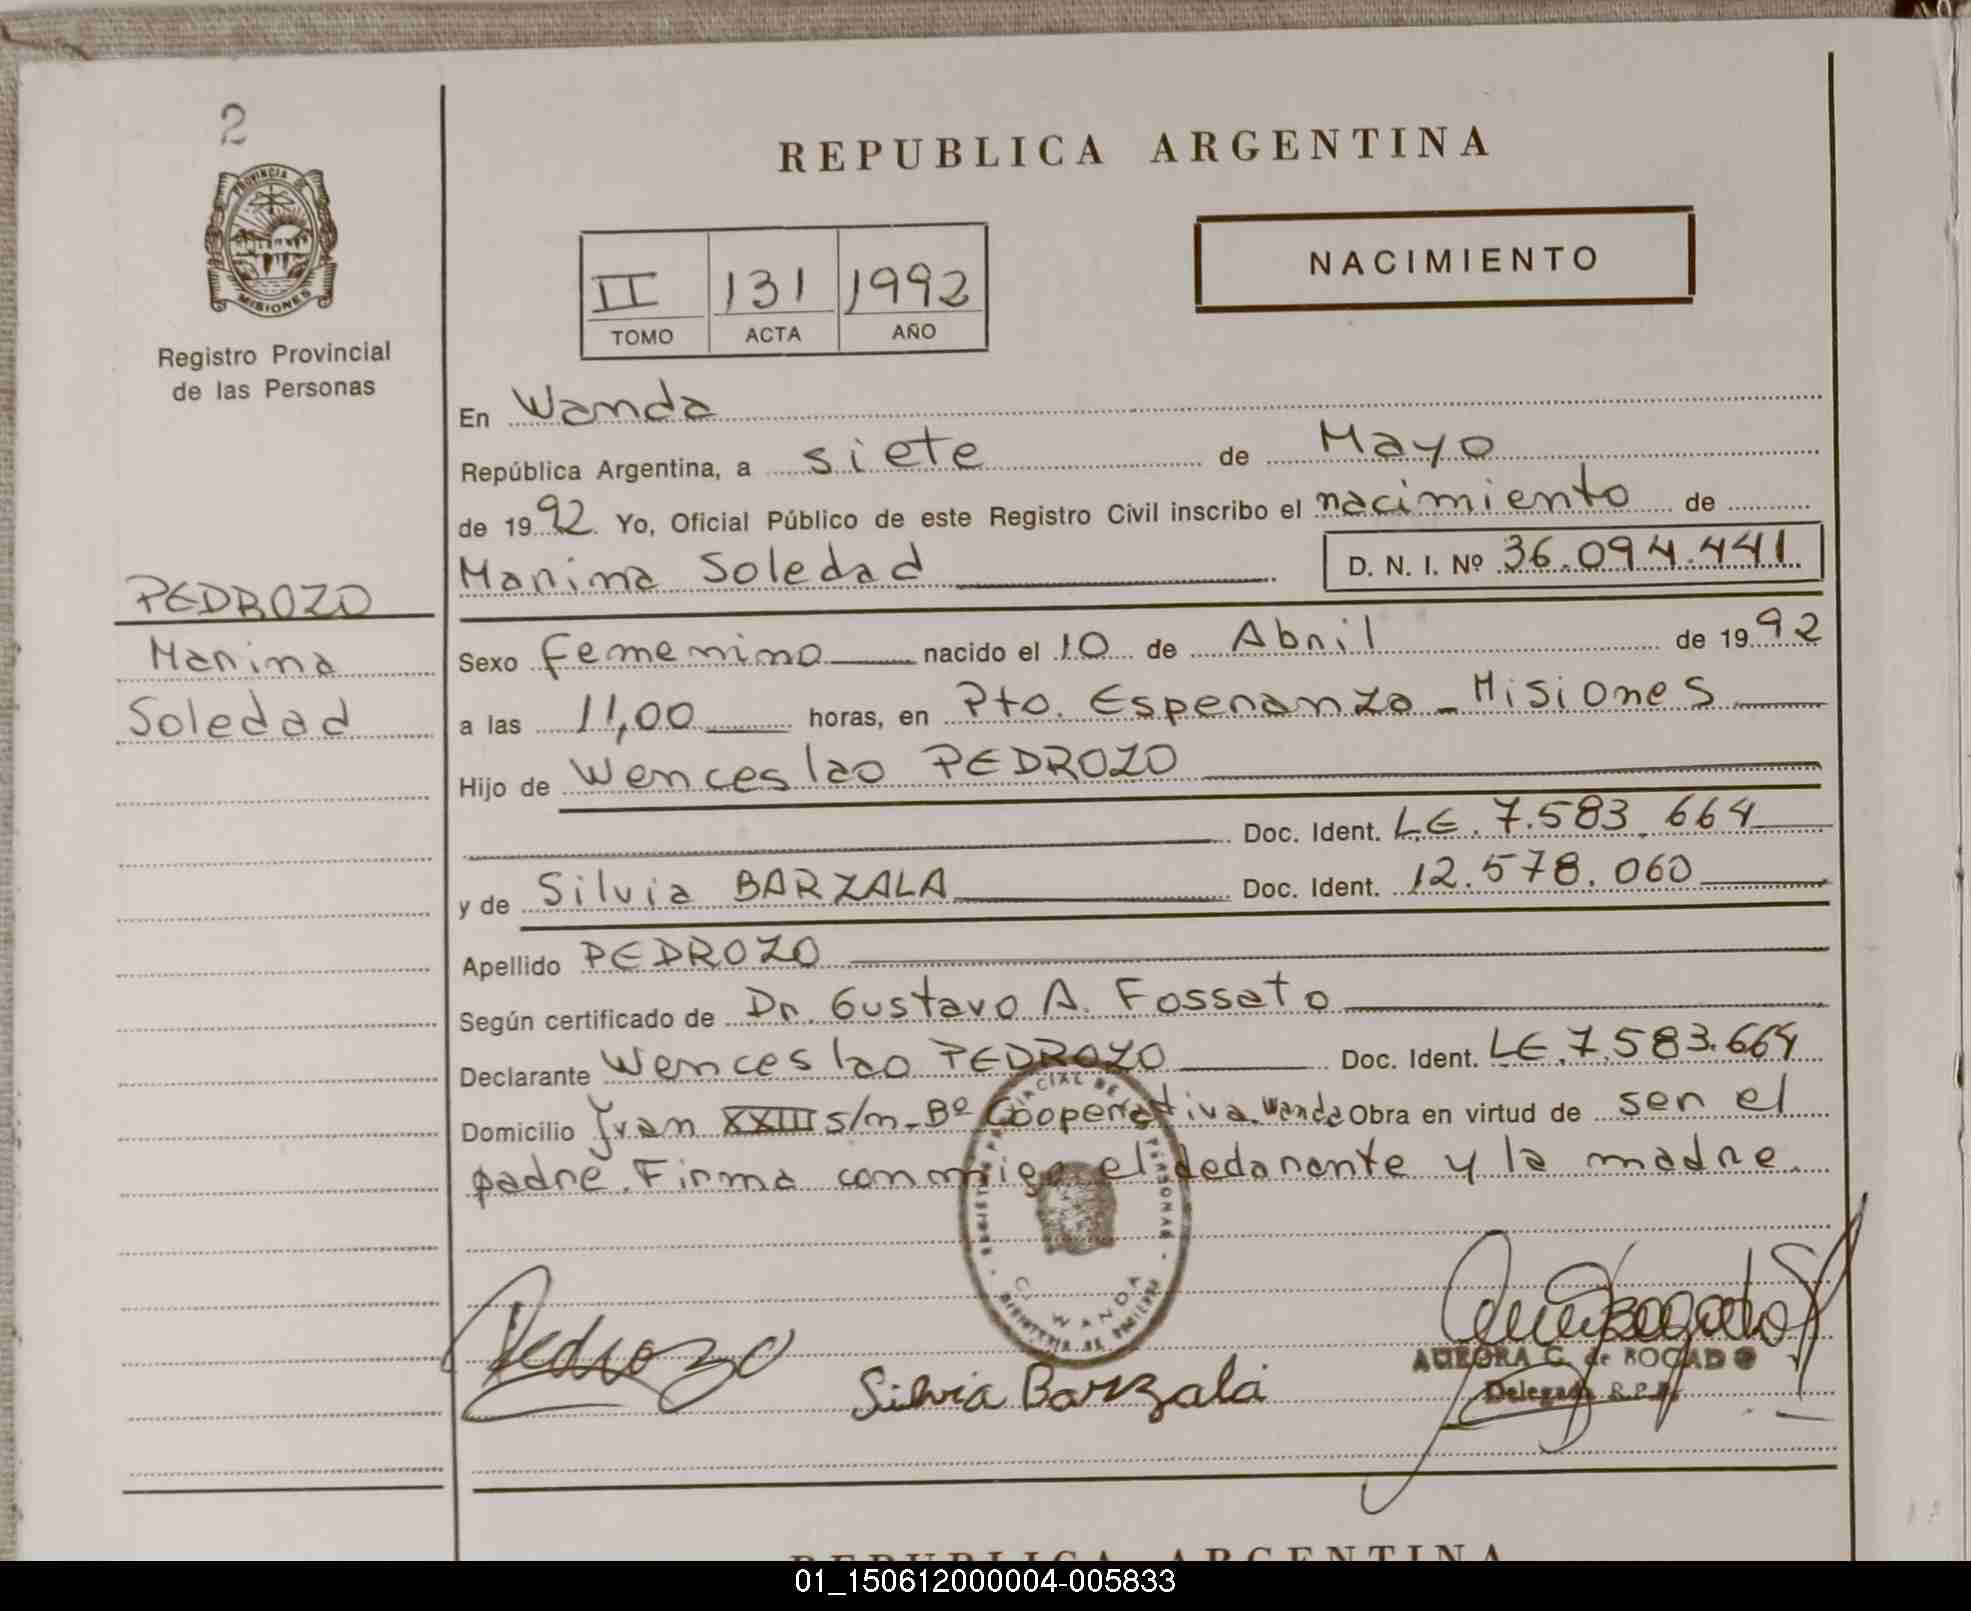 2
PROVINCIA DE
MISIONES
Registro Provincial
de las Personas
PEDROZO
Marina
Soledad
REPUBLICA ARGENTINA
II 131 1992
TOMO ACTA AÑO
NACIMIENTO
En Wanda
República Argentina, a siete de Mayo
de 1992 Yo, Oficial Público de este Registro Civil inscribo el nacimiento de
Marina Soledad D. N. I. Nº 36.094.441
Sexo femenino nacido el 10 de Abril de 1992
a las 11,00 horas, en Pto. Esperanza - Misiones
Hijo de Wenceslao PEDROZO
Doc. Ident. LE. 7.583.664
y de Silvia BARZALA Doc. Ident. 12.578.060
Apellido PEDROZO
Según certificado de Dr. Gustavo A. Fossato
Declarante Wenceslao PEDROZO Doc. Ident. LE.7.583.664
Domicilio Jvan XXIII s/n-Bº Cooperativa. Wanda Obra en virtud de ser el
padre. Firma conmigo el declarante y la madre.
WANDA
Pedrozo
Silvia Barzala
AURORA C. de BOGADO
Delegada R.P.P.
REPUBLICA ARGENTINA
01_150612000004-005833